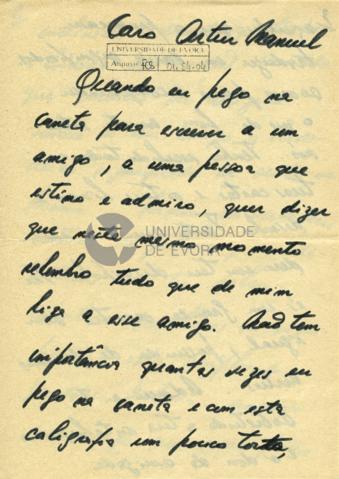 Caro Artur Manuel
UNIVERSIDADE DE EVORA
Arquivo RCB 01.54-04
Quando eu pego na
caneta para escrever a um
amigo, a uma pessoa que
estimo e admiro, quer dizer
que neste mesmo momento
relembro tudo que de mim
liga a esse amigo. Não tem
importância quantas vezes eu
pego na caneta e com esta
caligrafia um pouco torta,
UNIVERSIDADE
DE EVORA